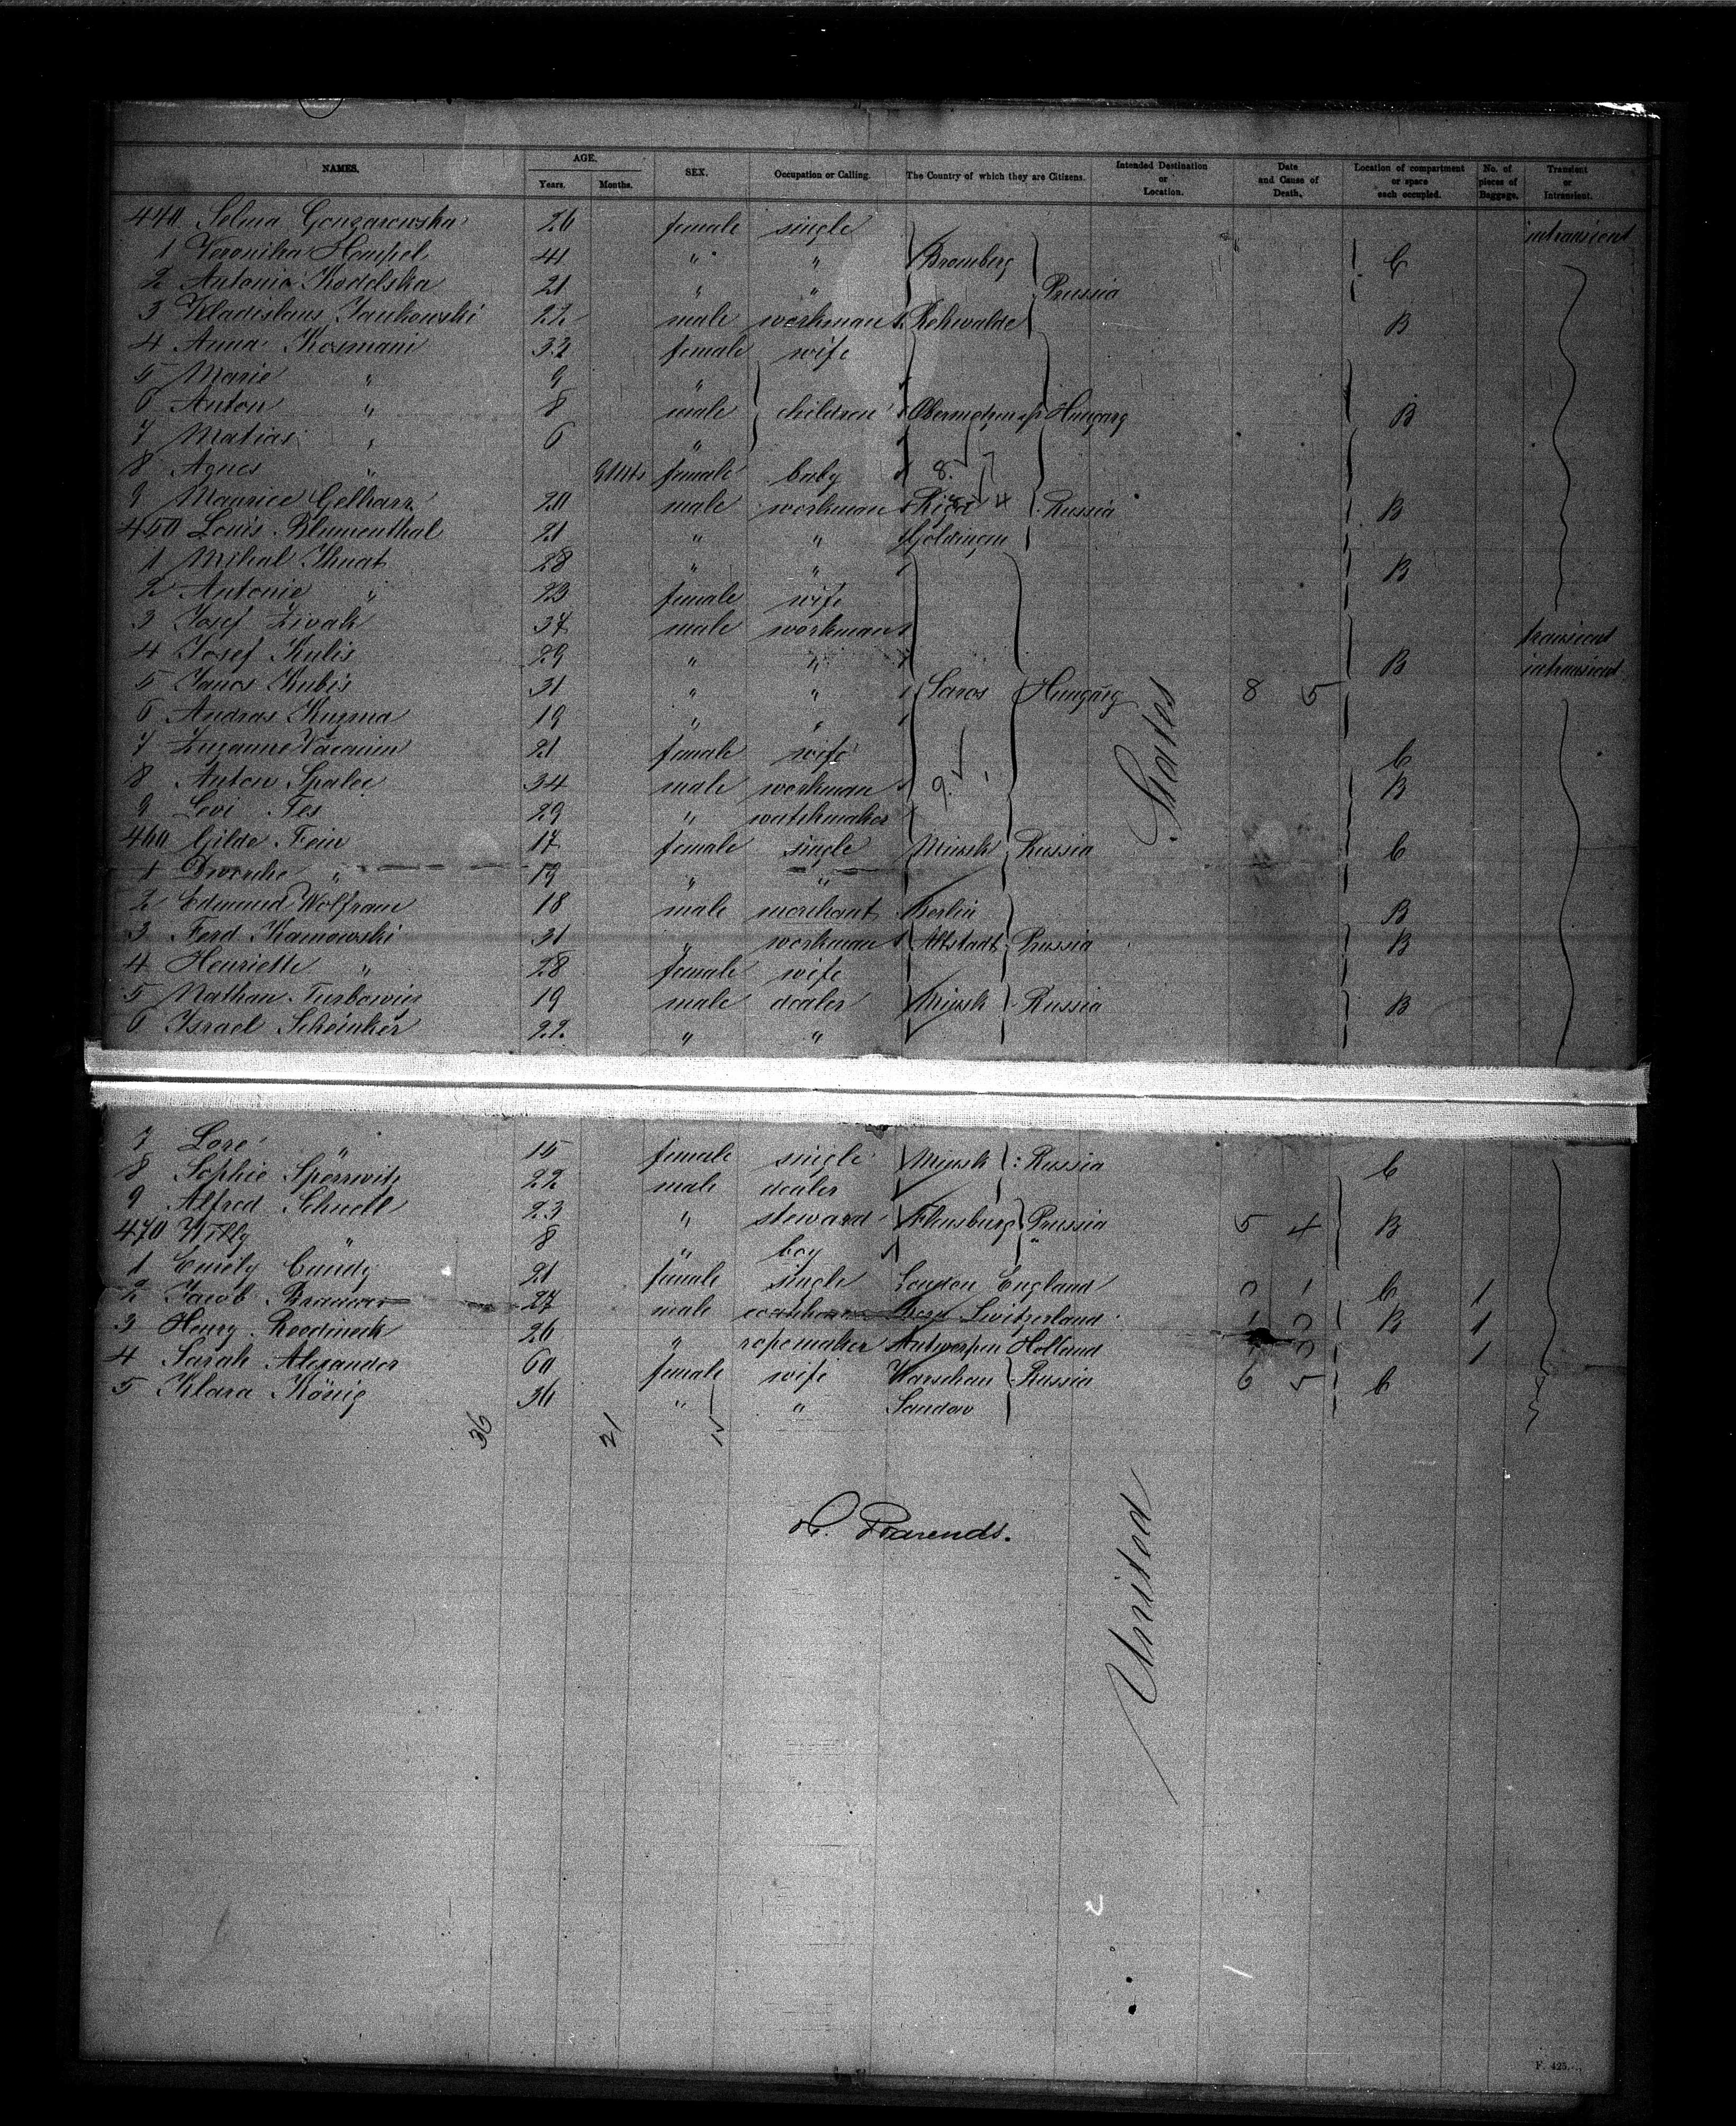 NAMES. AGE. Years. Months. SEX. Occupation or Calling. The Country of which they are Citizens. Intended Destination or Location. Date and Cause of Death. Location of compartment or space each occupied. No. of pieces of Baggage. Transient or Intransient.
440 Selma 26 female single intransient
1 Veronika Hempel 41 " " Bromberg C
2 Antonia 21 " " Prussia
3 Jankowski male workman Rehwalde B
4 Anna female wife
5 Marie " 9 "
6 Anton " 8 male children Hungary B
7 Matias " 6 "
8 Agnes " 9 Mts female baby 8.
9 Maurice 20 male workman Riga 4 Russia B
450 Louis Blumenthal 21 " " Goldingen
1 Mihal 28 " " B
2 Antonie " 23 female wife
3 Josef Zivak 37 male workman transient
4 Josef Kulis 29 " " B intransient
5 Janos Kubis 31 " " Saros Hungary 8 5
6 Andras Kuzma 19 " "
7 Zuzanne 21 female wife C
8 Anton Spalec 34 male workman 9. B
9 Levi 29 " watchmaker
460 Gilde Fein 17 female single Minsk Russia C
1 Dworche " 19 " "
2 Edmund Wolfram 18 male merchant Berlin B
3 Ferd. Kamowski 31 " workman Altstadt Prussia B
4 Henriette " 28 female wife
5 Nathan 19 male dealer Minsk Russia B
6 Israel Scheinker 22 " "
7 Lore " 15 female single Minsk Russia C
8 Sophie 22 male dealer
9 Alfred Schnell 23 " steward Flensburg Prussia 5 4 B
470 Willy " 8 " boy "
1 Emily 21 female single London England 0 1 C 1
2 Jacob 27 male Switzerland 1 0 B 1
3 Henry 26 " ropemaker Antwerpen Holland 0 1
4 Sarah Alexander 60 female wife Warschau Russia 6 5 C
5 Klara König 36 " " Sandow
36 21 15
Barends.
United States
F. 425